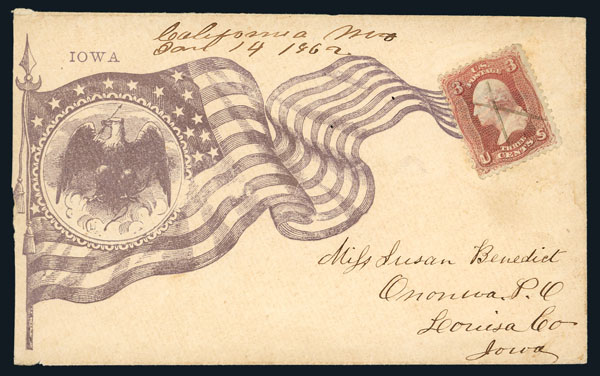 California Mo
Jan 14 1862
IOWA
3 U.S. 3
POSTAGE
THREE
U CENTS S
Miss Susan Benedict
Ononwa P.O
Louisa Co
Iowa